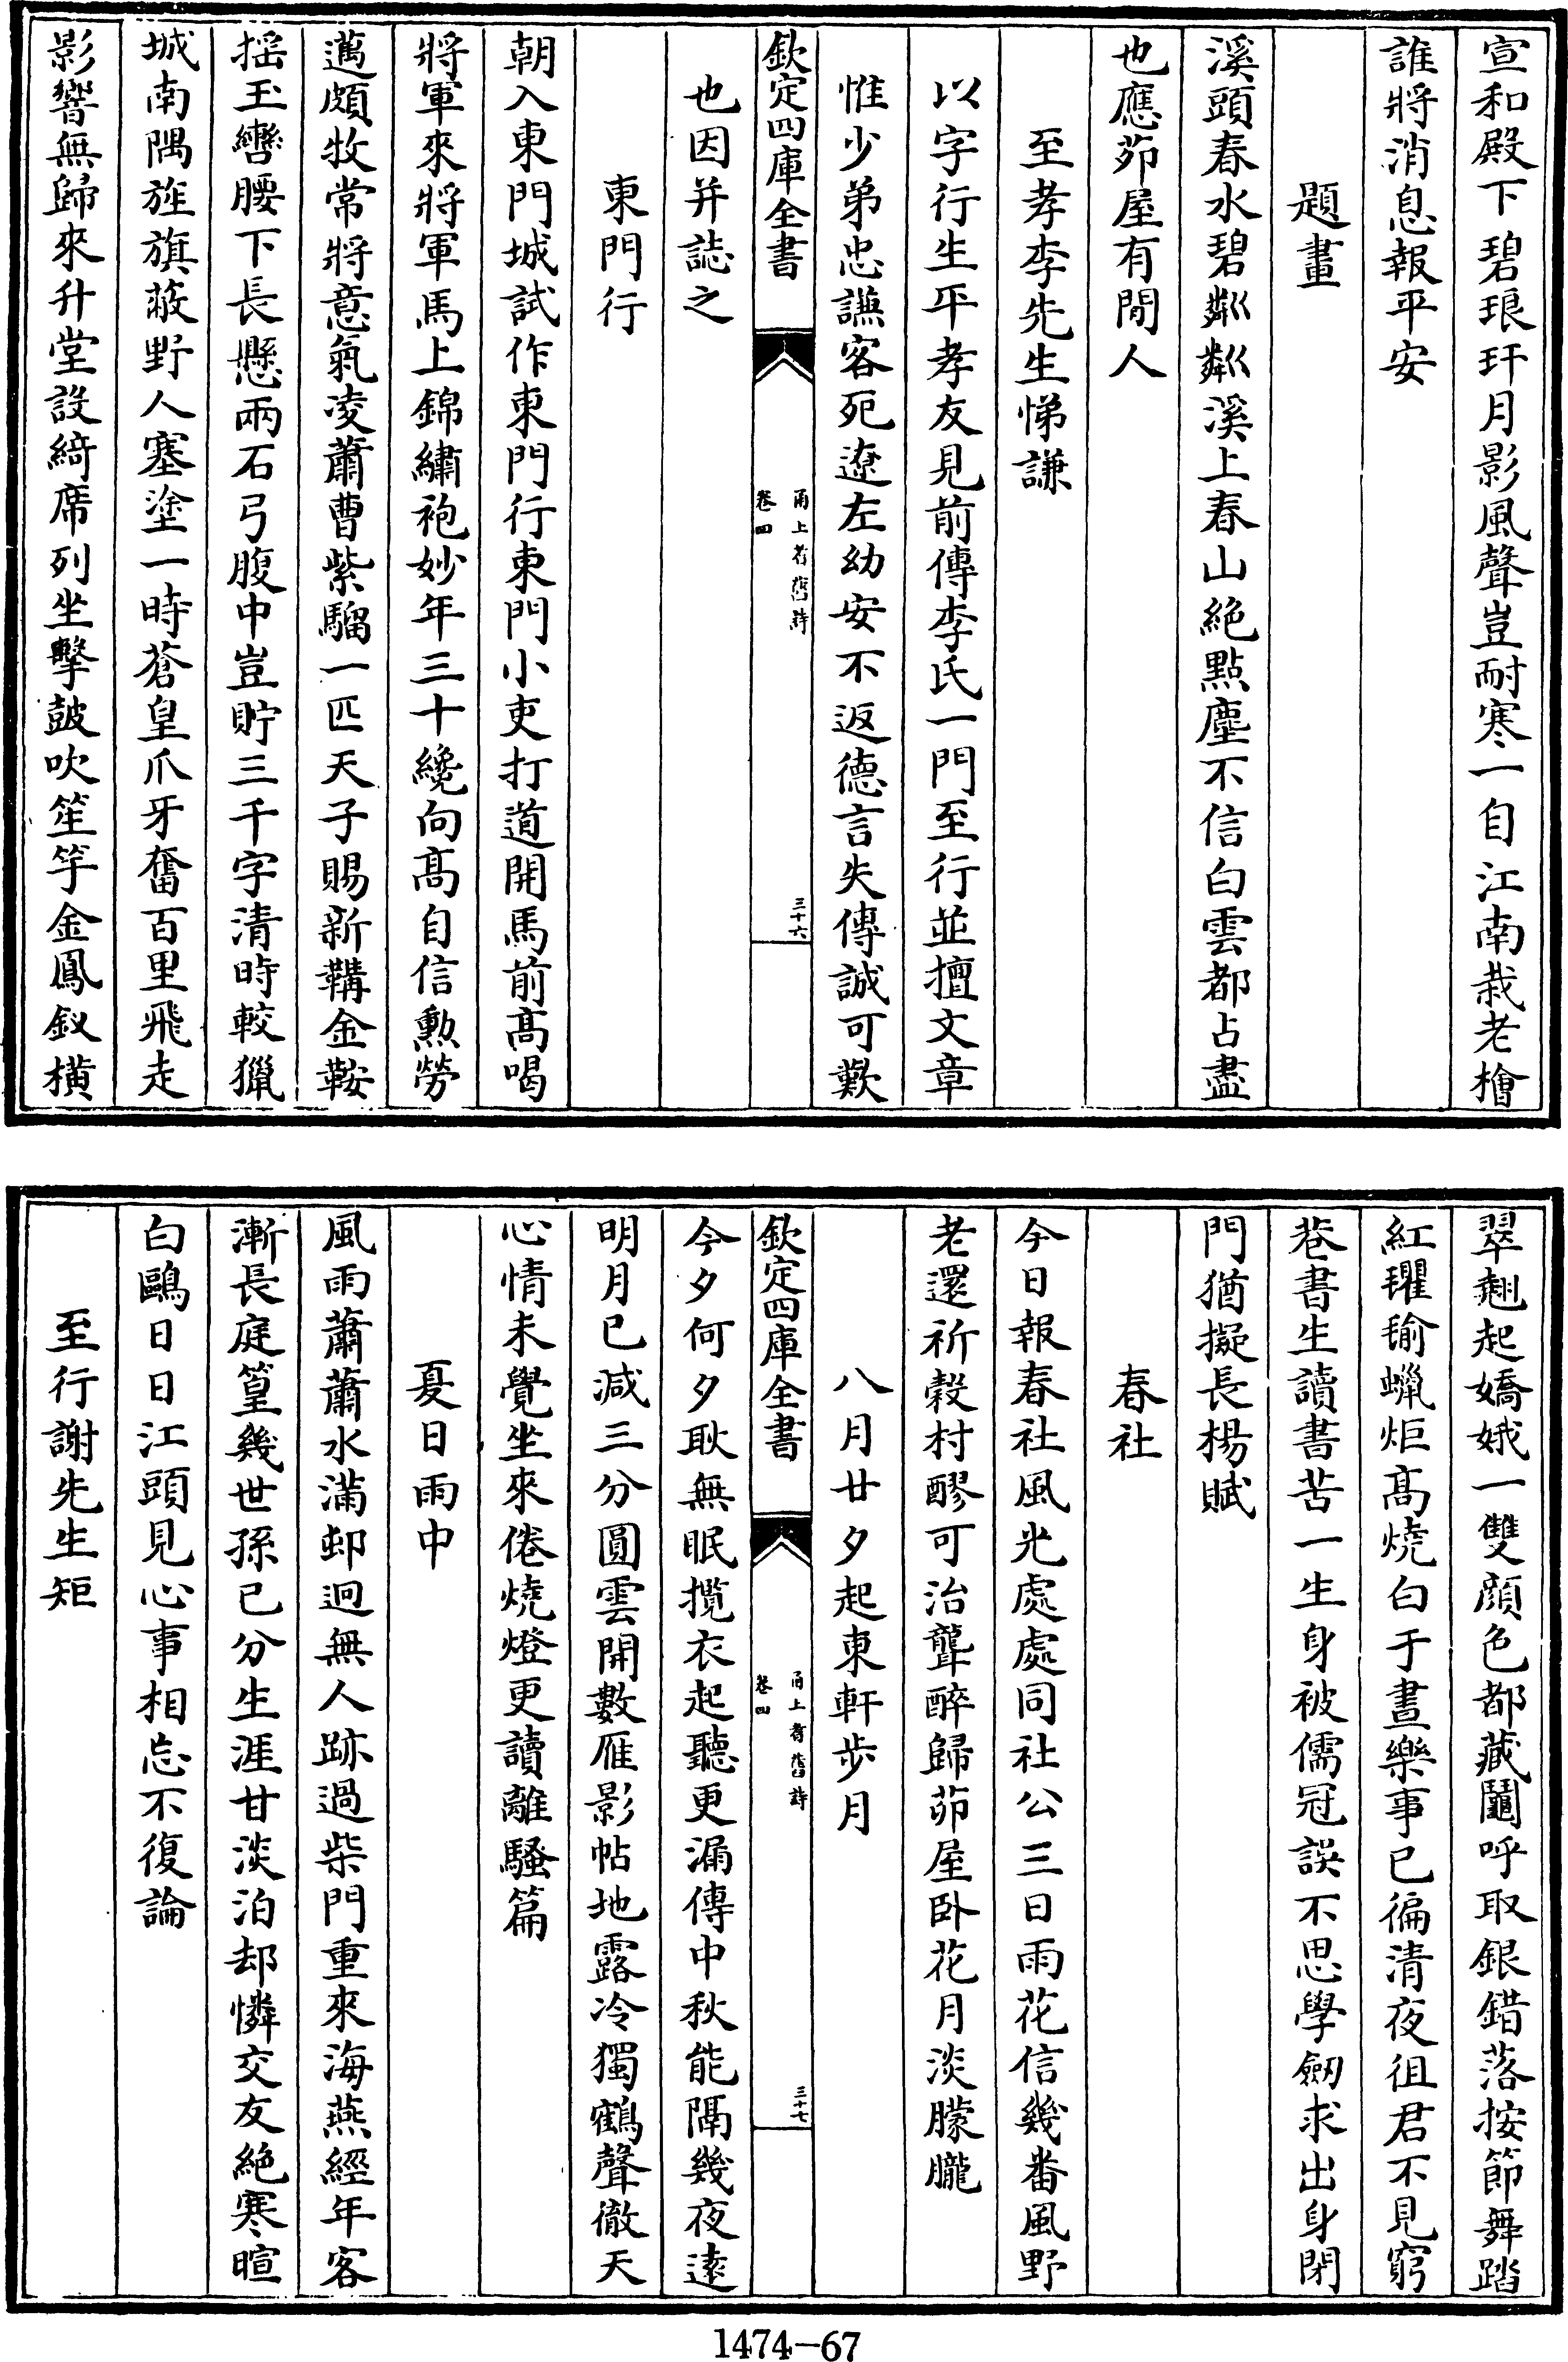 宣和殿下碧琅玕月影風聲豈耐寒一自江南栽老檜
誰將消息報平安
題畫
溪頭春水碧粼粼溪上春山絶點塵不信白雲都占盡
也應茆屋有閒人
至孝李先生悌謙
以字行生平孝友見前傳李氏一門至行並擅文章
惟少弟忠謙客死遼左幼安不返德言失傳誠可歎
欽定四庫全書
甬上耆舊詩
卷四
三十六
也因并誌之
東門行
朝入東門城試作東門行東門小吏打道開馬前高喝
將軍來將軍馬上錦繡袍妙年三十纔向髙自信勲勞
邁頗牧常將意氣凌蕭曹紫騮一匹天子賜新鞲金鞍
揺玉轡腰下長懸兩石弓腹中豈貯三千字清時較獵
城南隅旌旗蔽野人塞塗一時蒼皇爪牙奮百里飛走
影響無歸來升堂設綺席列坐擊鼓吹笙竽金鳳釵横
翠翹起嬌娥一雙顔色都藏鬮呼取銀錯落按節舞踏
紅氍毹蠟炬髙燒白于晝樂事已徧清夜徂君不見窮
巷書生讀書苦一生身被儒冠誤不思學劒求出身閉
門猶擬長楊賦
春社
今日報春社風光處處同社公三日雨花信幾番風野
老還祈榖村醪可治聾醉歸茆屋卧花月淡朦朧
八月廿夕起東軒步月
欽定四庫全書
甬上耆舊詩
卷四
三十七
今夕何夕耿無眠攬衣起聽更漏傳中秋能隔幾夜逺
明月已減三分圓雲開數雁影帖地露冷獨鶴聲徹天
心情未覺坐來倦燒燈更讀離騷篇
夏日雨中
風雨蕭蕭水滿邨迥無人跡過柴門重來海燕經年客
漸長庭篁幾世孫已分生涯甘淡泊却憐交友絶寒暄
白鷗日日江頭見心事相忘不復論
至行謝先生矩
1474-67